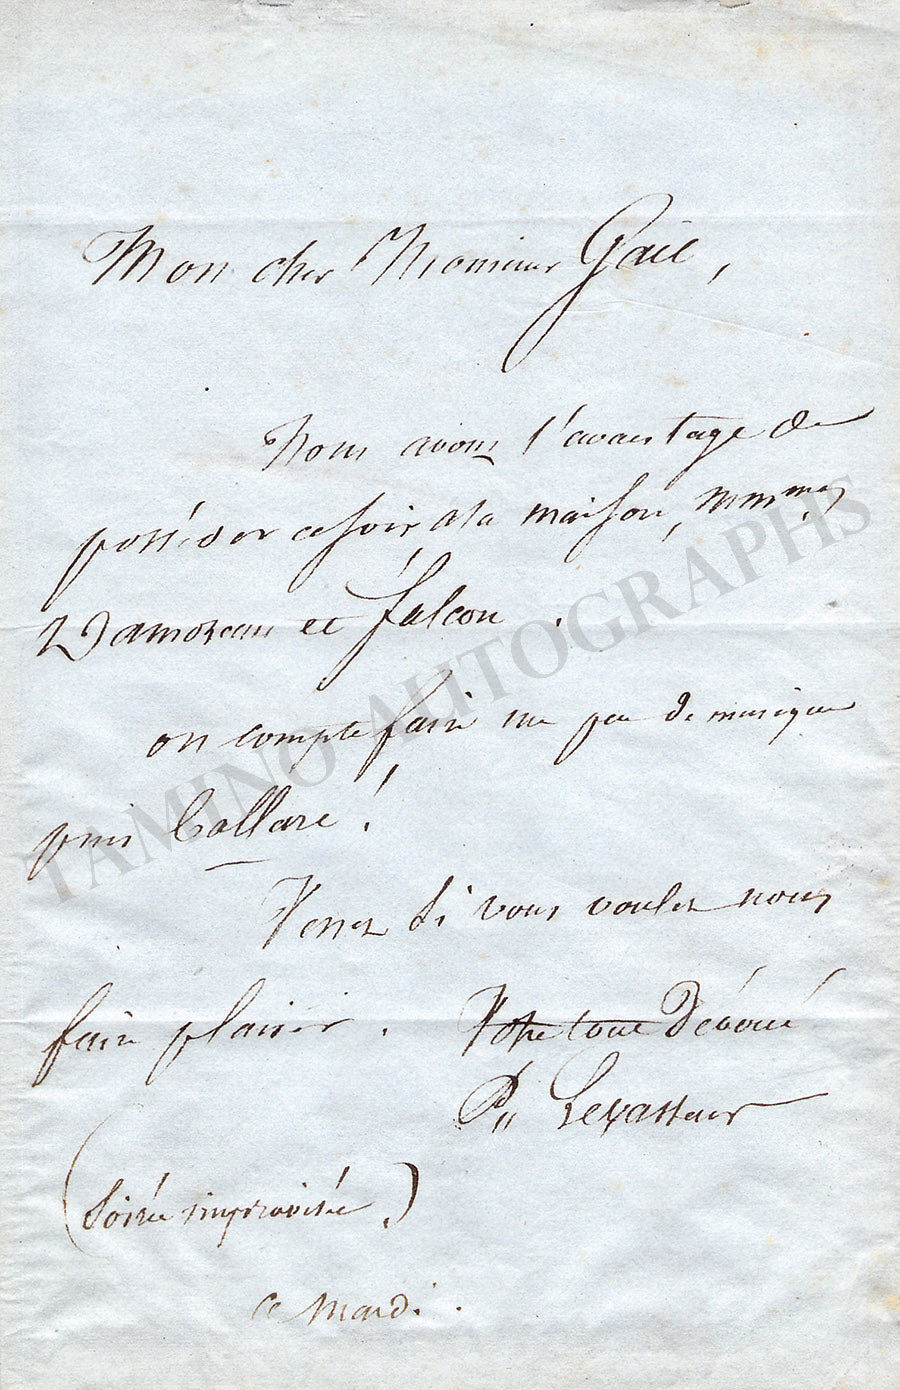 Mon cher Monsieur Gail,
Nous avons l'avantage de
posséder ce soir a la maison, Mmmes
Damoreau et falcon.
on compte faire un peu de musique
puis
Venez si vous voulez nous
faire plaisir. Votre tout Dévoué
Pr Levasseur
(Soirée improvisée.)
ce Mardi.
TAMINO AUTOGRAPHS